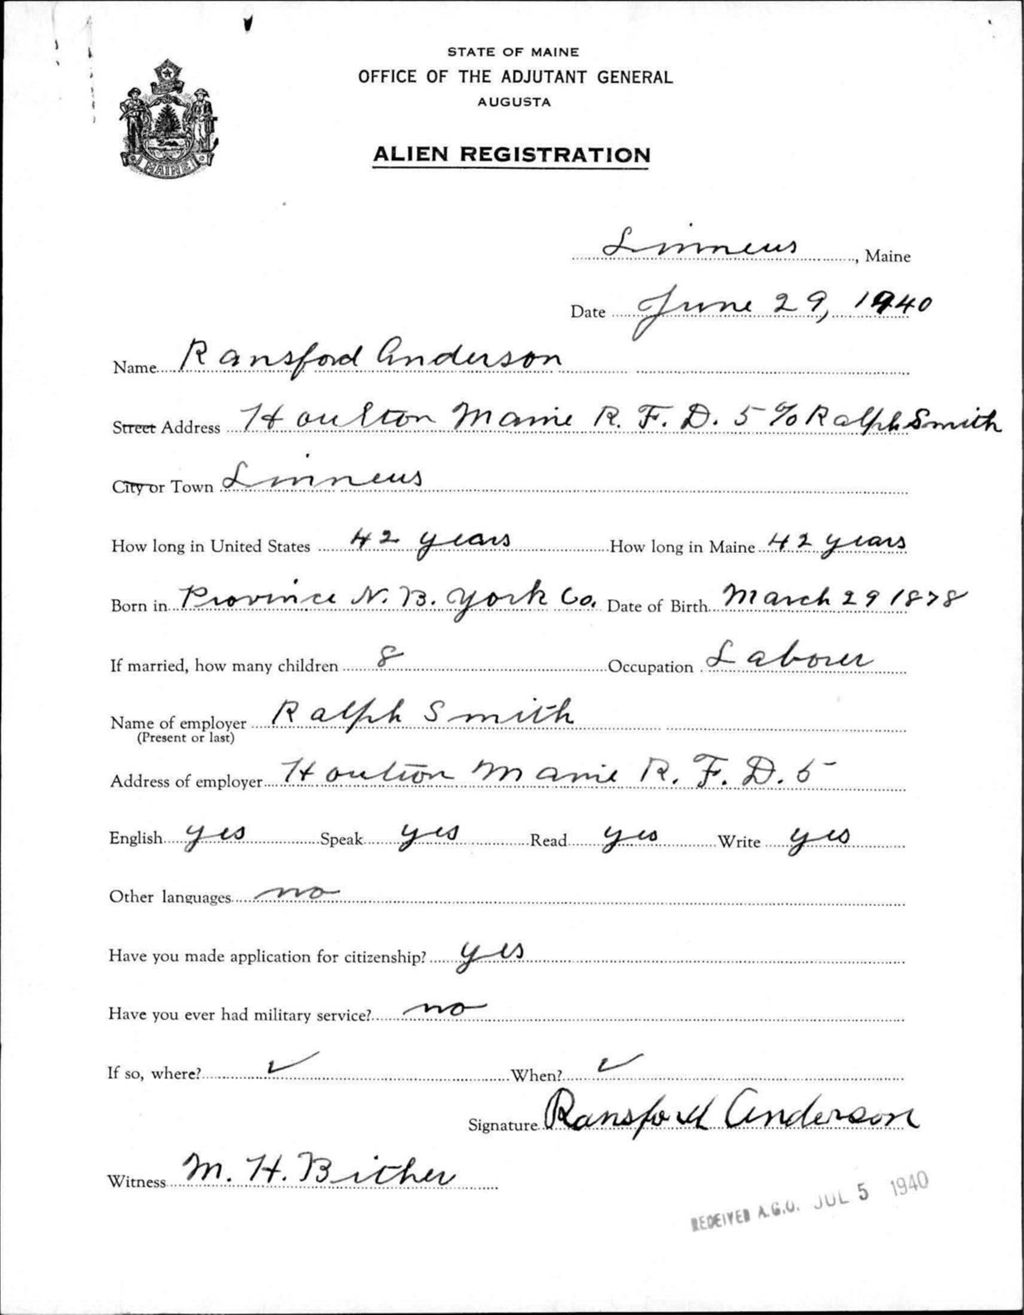 STATE OF MAINE
OFFICE OF THE ADJUTANT GENERAL
AUGUSTA
ALIEN REGISTRATION
MAINE
Linneus, Maine
Date June 29, 1940
Name Ransford Anderson
Street Address Houlton Maine R. F. D. 5 % Ralph Smith
City or Town Linneus
How long in United States 42 years How long in Maine 42 years
Born in Province N. B. York Co. Date of Birth March 29 1878
If married, how many children 8 Occupation Laborer
Name of employer Ralph Smith
(Present or last)
Address of employer Houlton Maine R. F. D. 5
English yes Speak yes Read yes Write yes
Other languages no
Have you made application for citizenship? yes
Have you ever had military service? no
If so, where? ✓ When? ✓
Signature Ransford Anderson
Witness M. H. Bither
RECEIVED A.G.O. JUL 5 1940